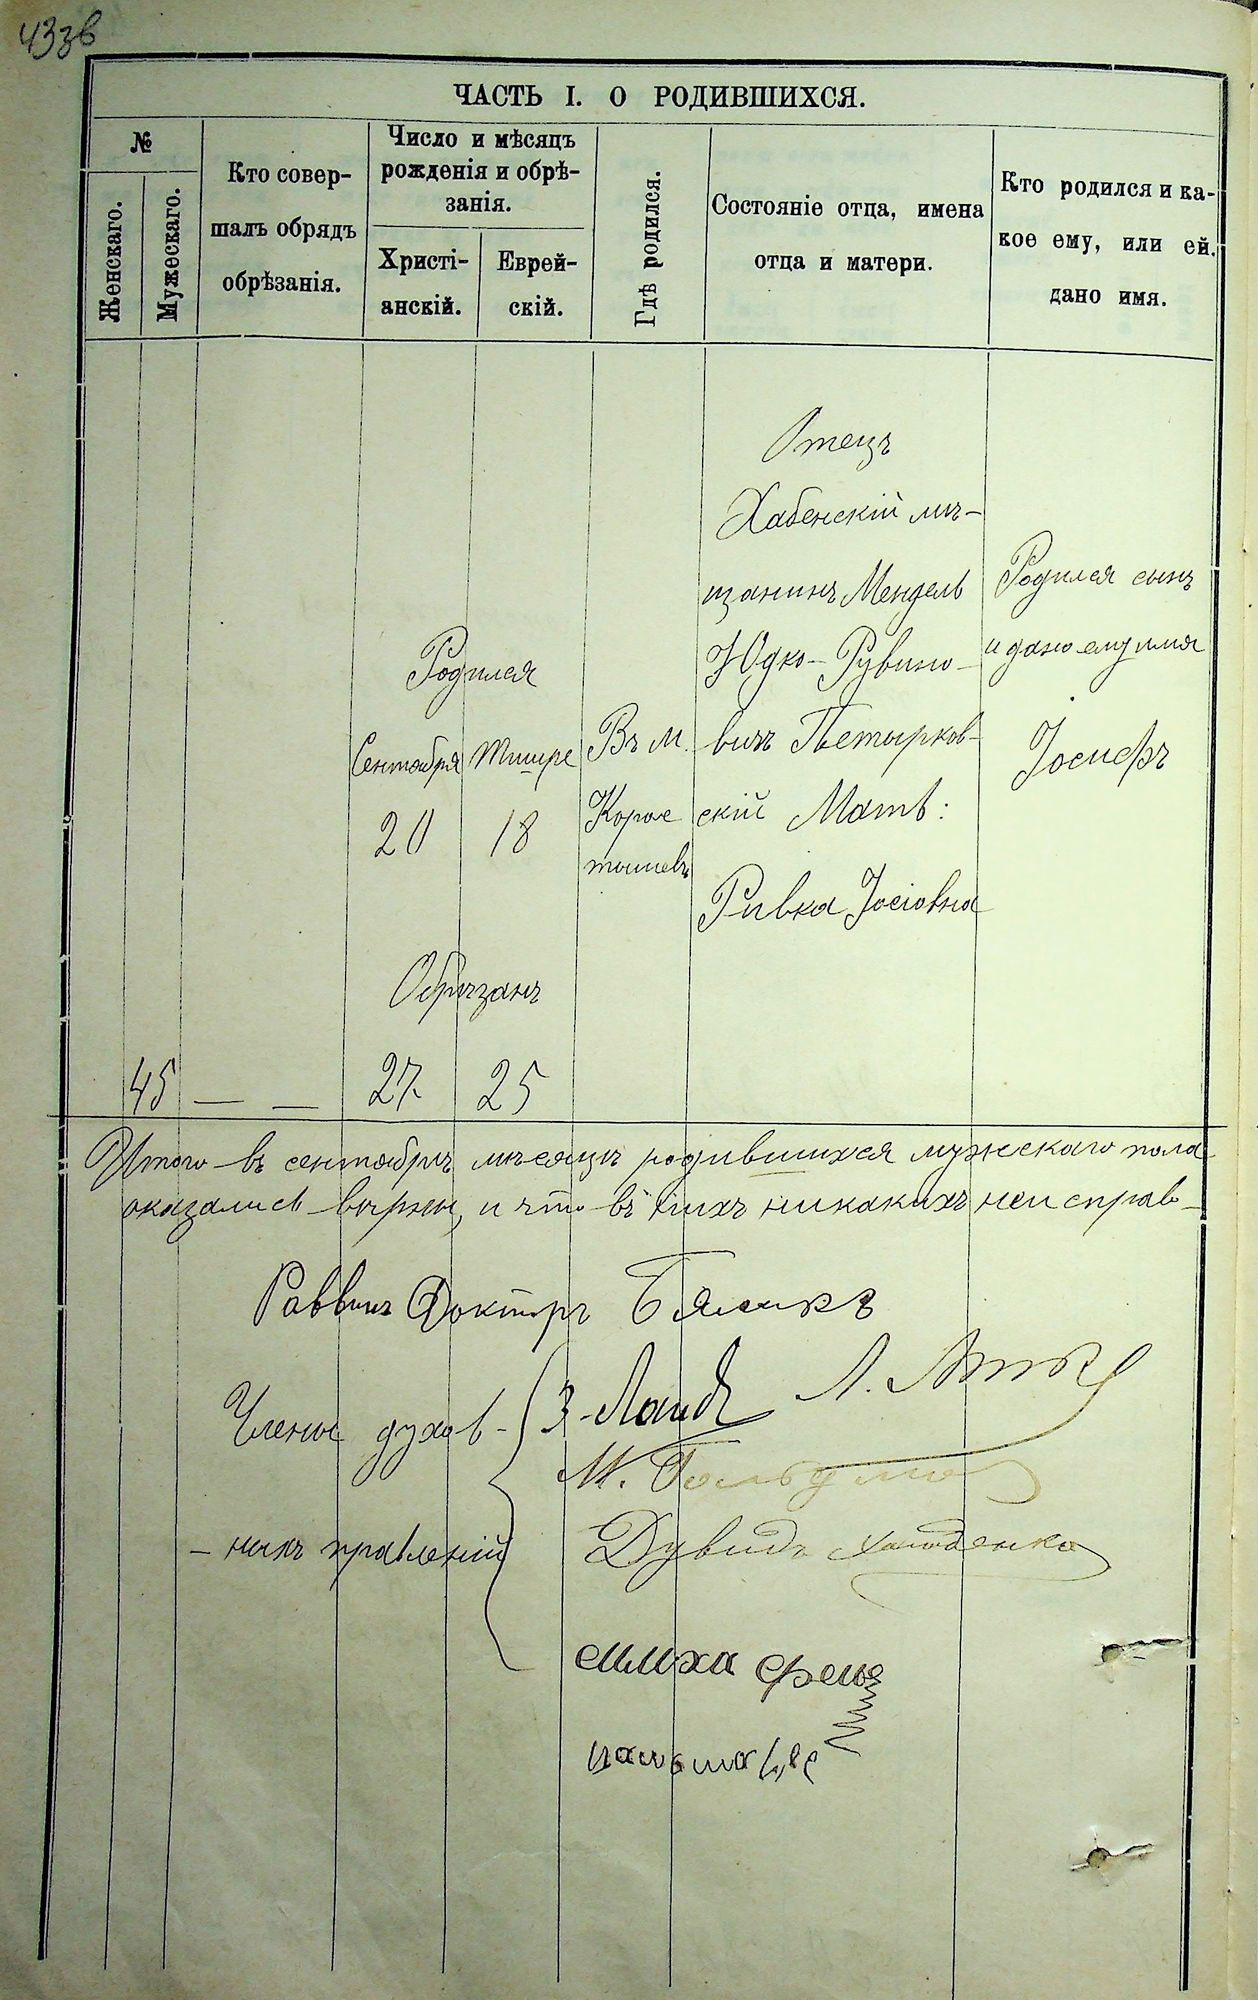 433б
ЧАСТЬ I. О РОДИВШИХСЯ.
№
Женскаго.
Мужескаго.
Кто совер-
шалъ обрядъ
обрѣзанія.
Число и мѣсяцъ
рожденія и обрѣ-
занія.
Христі-
анскій.
Еврей-
скій.
Гдѣ родился.
Состояніе отца, имена
отца и матери.
Кто родился и ка-
кое ему, или ей.
дано имя.
45
— —
Родился
Сентября
20
Тишре
18
Обрѣзанъ
27
25
Въ м.
Корос
тышевѣ
Отецъ
Хабенскій мѣ-
щанинъ Мендель
Юдко-Рувино-
вичъ
скій Мать:
Ривка Іосіовна
Родился сынъ
и дано ему имя
Іосифъ
Итого въ сентябрѣ мѣсяцѣ родившихся мужескаго пола
оказались вѣрны, и что въ нихъ никакихъ неисправ-
Раввинъ Докторъ
Члены духов-
-ныхъ правленій
З.
Л.
М.
Дувидъ Холоденко